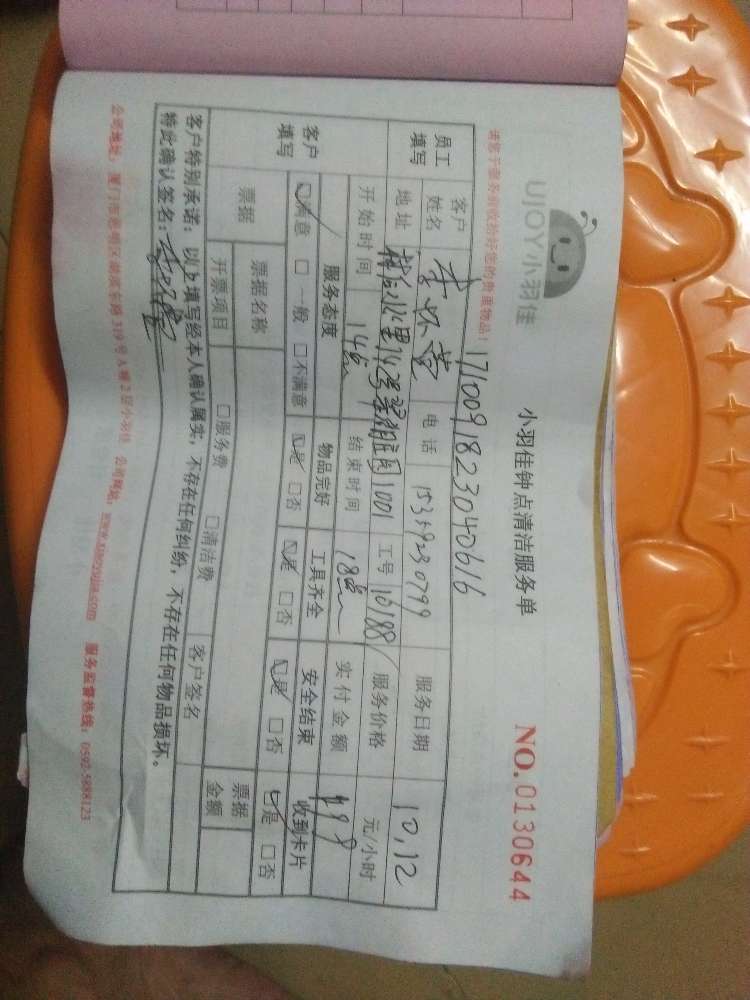 UJOY小羽佳
小羽佳钟点清洁服务单
NO.0130644
请您于服务前收拾好您的贵重物品！
1710091823040616
员工填写
客户姓名
电话 15359230799
服务日期 10.12
地址 1001
工号 10188
服务价格 元/小时
开始时间 14
结束时间 18
实付金额
客户填写
服务态度 物品完好 工具齐全 安全结束 收到卡片
☑满意 □一般 □不满意 ☑是 □否 ☑是 □否 ☑是 □否 ☑是 □否
票据 票据名称 票据金额
开票项目 □服务费 □清洁费 客户签名
客户特别承诺：以上填写经本人确认属实，不存在任何纠纷，不存在任何物品损坏。
特此确认签名：
公司地址：厦门市思明区湖滨东路319号A幢2层小羽佳 公司网站：www.xiaoyujia.com 服务监督热线：0592-5888123